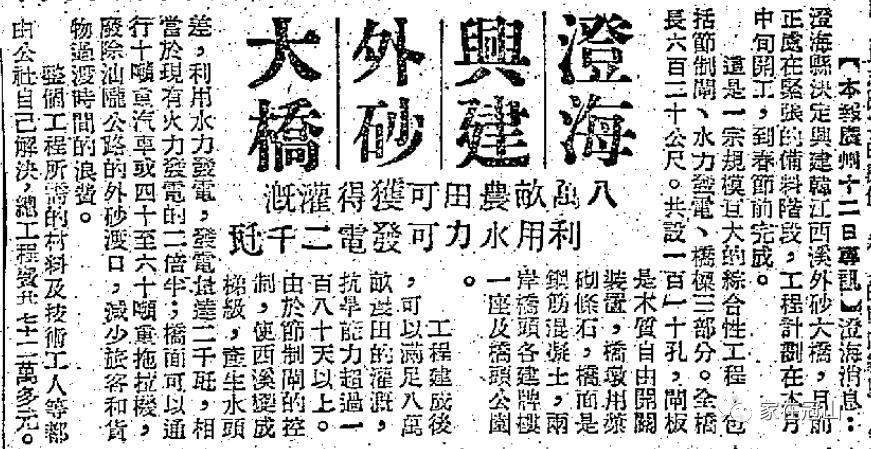 澄海
興建
外砂
大橋
八萬畝農田可獲得灌溉
利用水力可發電二千瓩
【本報廣州十二日專訊】澄海消息：
澄海縣決定興建韓江西溪外砂大橋，目前
正處在緊張的備料階段，工程計劃在本月
中旬開工，到春節前完成。
這是一宗規模巨大的綜合性工程，包
括節制閘、水力發電、橋樑三部分。全橋
長六百二十公尺。共設一百一十孔，閘板
是木質自由開關
裝置，橋墩用漿
砌條石，橋面是
鋼筋混凝土，兩
岸橋頭各建牌樓
一座及橋頭公園
。
工程建成後
，可以滿足八萬
畝農田的灌溉，
抗旱能力超過一
百八十天以上。
由於節制閘的控
制，使西溪變成
梯級，產生水頭
差，利用水力發電，發電量達二千瓩，相
當於現有火力發電的二倍半；橋面可以通
行十噸重汽車或四十至六十噸重拖拉機，
廢除汕隴公路的外砂渡口，減少旅客和貨
物過渡時間的浪費。
整個工程所需的材料及技術工人等都
由公社自己解決，總工程費共七十二萬多元。
家在冠山